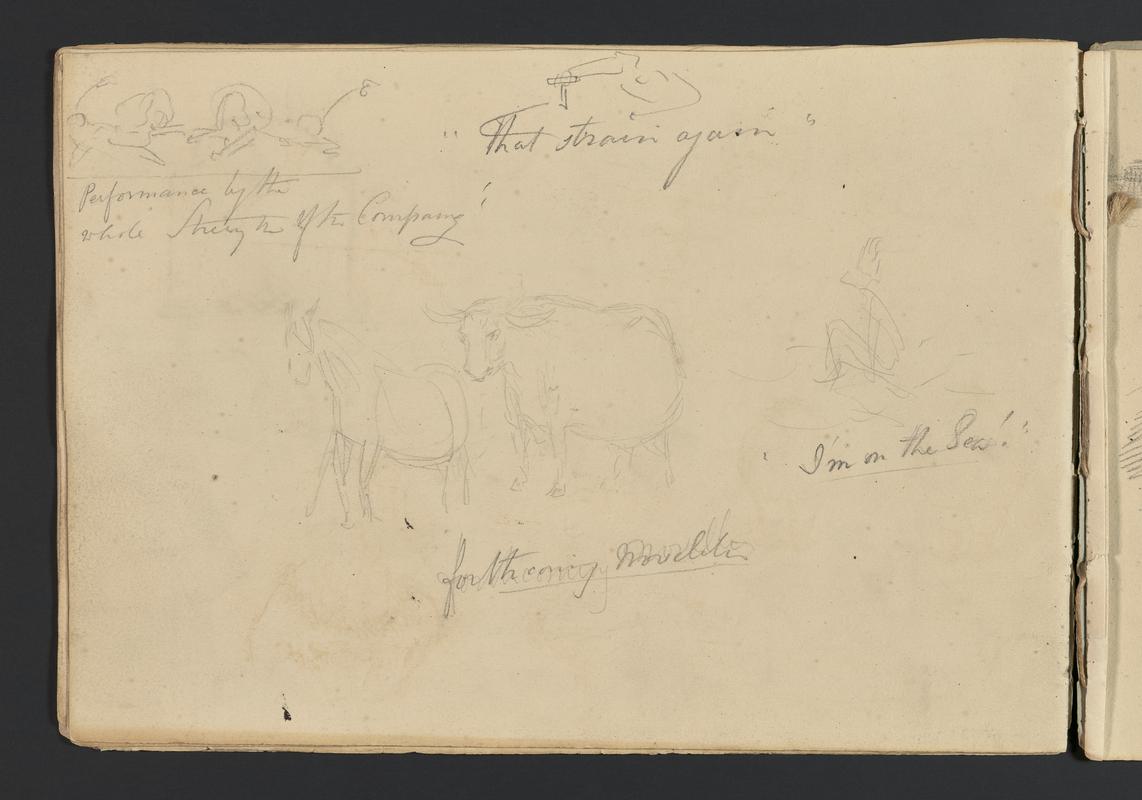 "That strain again"
Performance by the
whole Strength of the Company!
"I'm on the Sea!"
forthcoming Novelties